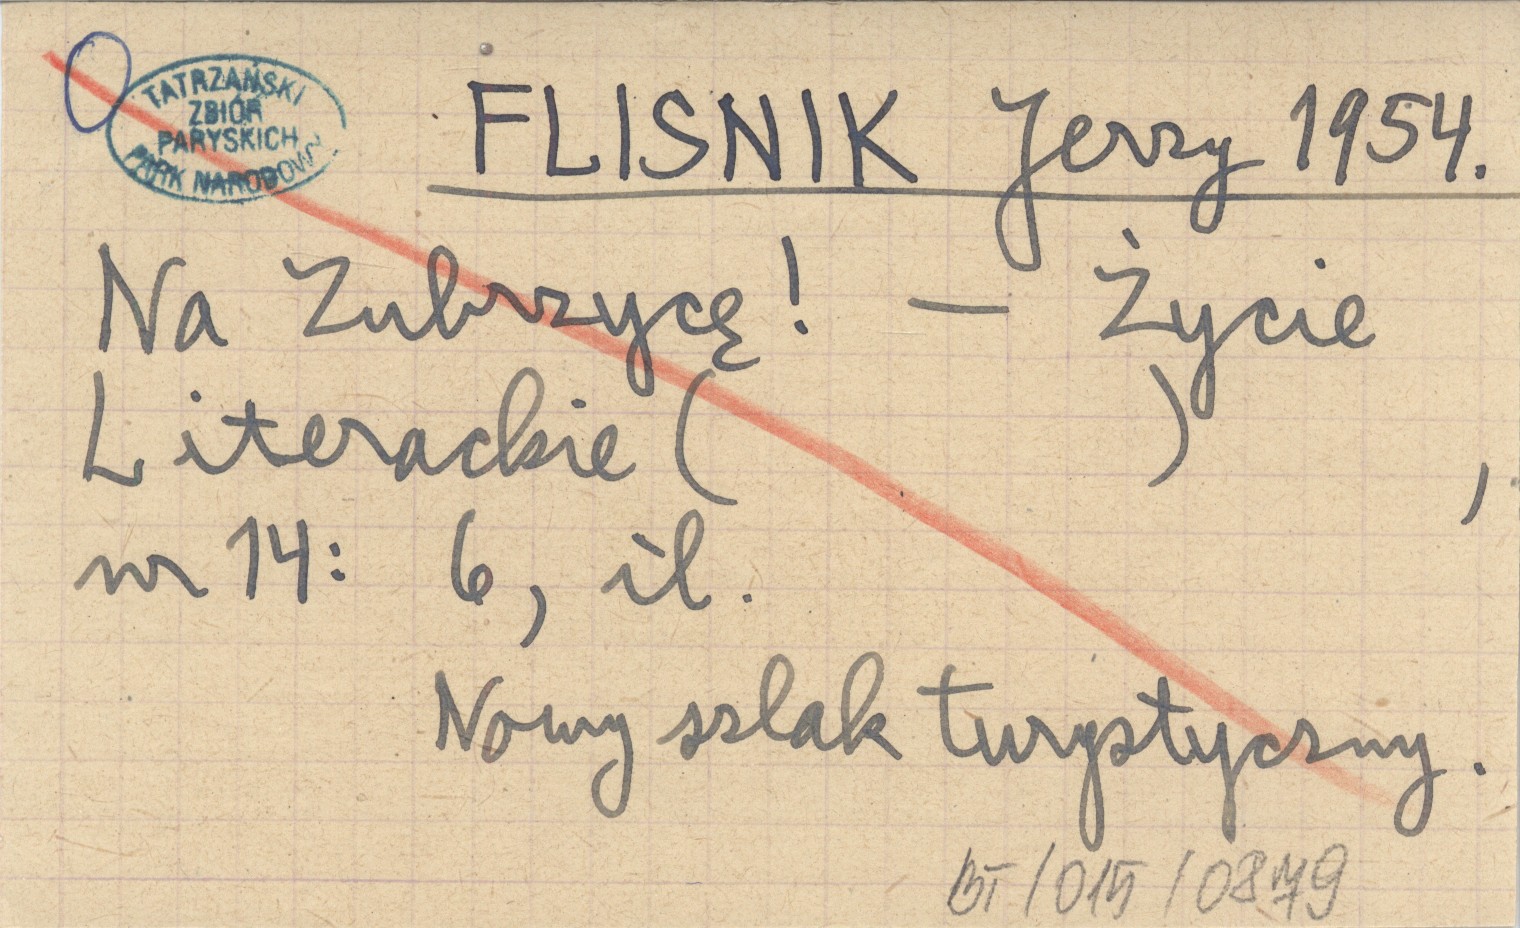 TATRZAŃSKI
ZBIÓR
PARYSKICH
PARK NARODOWY
FLISNIK Jerzy 1954.
Na Zubrzycę! – Życie
Literackie ( ) ,
nr 14: 6, il.
Nowy szlak turystyczny.
BT / 015 / 0879